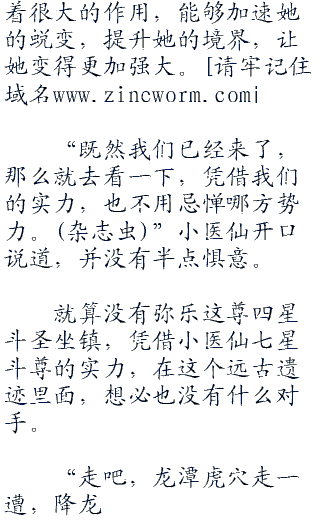 着很大的作用，能够加速她
的蜕变，提升她的境界，让
她变得更加强大。[请牢记住
域名www.zincworm.com|
“既然我们已经来了，
那么就去看一下，凭借我们
的实力，也不用忌惮哪方势
力。(杂志虫)”小医仙开口
说道，并没有半点惧意。
就算没有弥乐这尊四星
斗圣坐镇，凭借小医仙七星
斗尊的实力，在这个远古遗
迹里面，想必也没有什么对
手。
“走吧，龙潭虎穴走一
遭，降龙